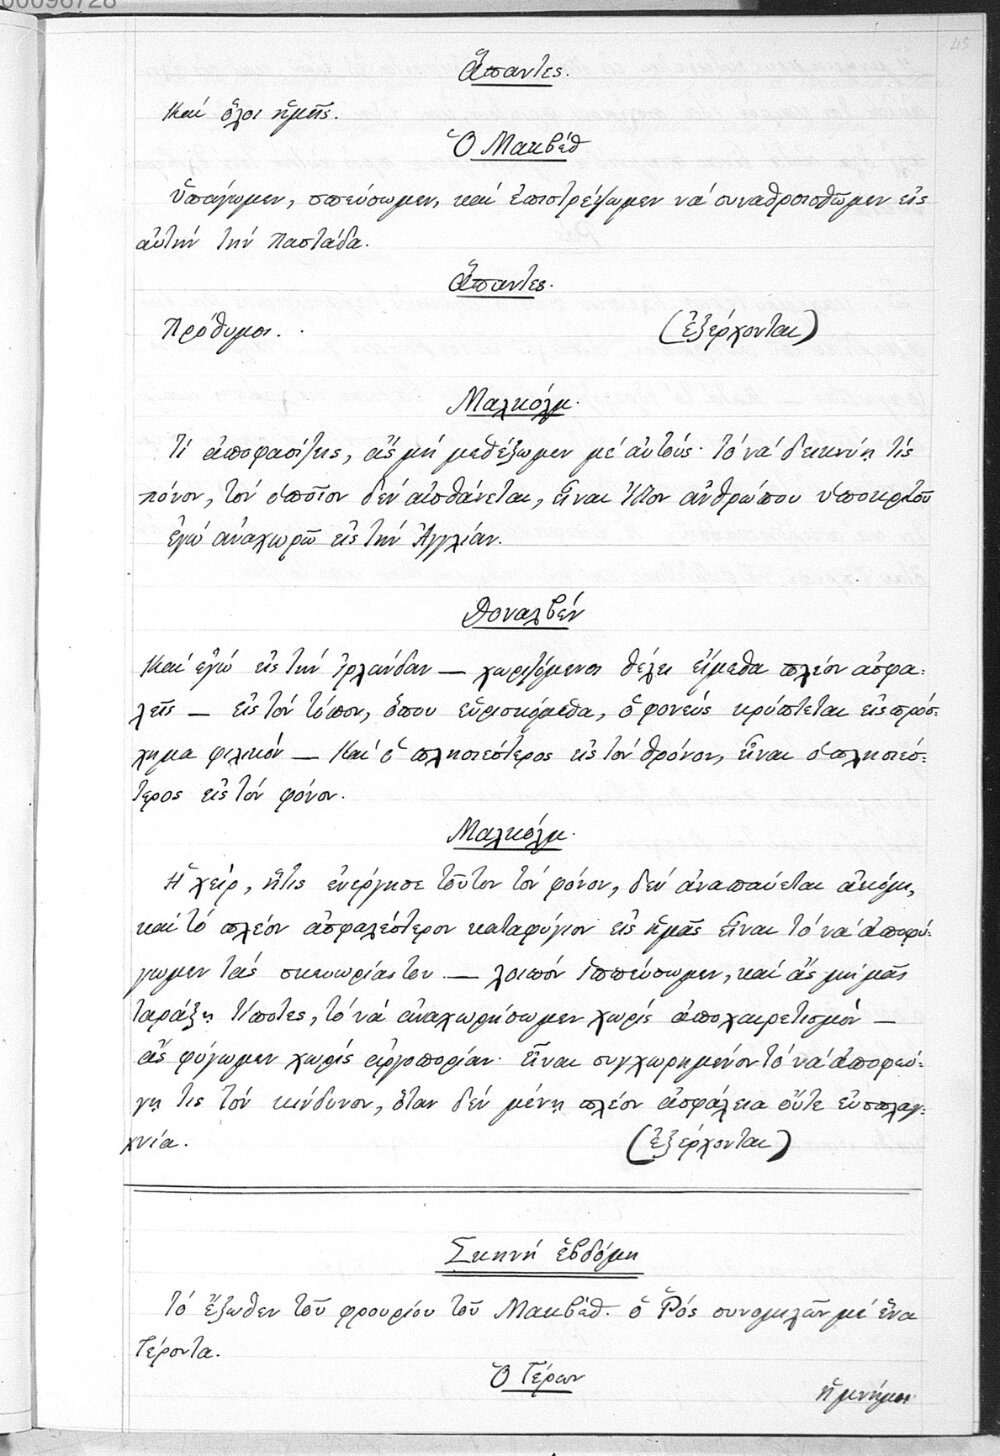 00096728
45
Ἅπαντες.
Καί ὅλοι ἡμεῖς.
Ὁ Μακβέθ
Ὑπάγωμεν, σπεύσωμεν, καί ἐπιστρέψωμεν νά συναθροισθῶμεν εἰς
αὐτήν τήν παστάδα.
Ἅπαντες.
Πρόθυμοι.
(ἐξέρχονται)
Μαλκόλμ.
Τί ἀποφασίζεις, ἄς μή μεθέξωμεν μέ αὐτούς· τό νά δεικνύῃ τίς
πόνον, τόν ὁποῖον δέν αἰσθάνεται, εἶναι ἴδιον ἀνθρώπου ὑποκριτοῦ
ἐγώ ἀναχωρῶ εἰς τήν Ἀγγλίαν.
Δοναλβέν
Καί ἐγώ εἰς τήν Ἰρλάνδαν — χωριζόμενοι θέλει εἴμεθα πλέον ἀσφα-
λεῖς — εἰς τόν τόπον, ὅπου εὑρισκόμεθα, ὁ φονεύς κρύπτεται εἰς πρόσ-
χημα φιλικόν — Καί ὁ πλησιέστερος εἰς τόν θρόνον, εἶναι ὁ πλησιέσ-
τερος εἰς τόν φόνον.
Μαλκόλμ.
Ἡ χείρ, ἥτις ἐνέργησε τοῦτον τόν φόνον, δέν ἀναπαύεται ἀκόμη,
καί τό πλέον ἀσφαλέστερον καταφύγιον εἰς ἡμᾶς εἶναι τό νά ἀποφύ-
γωμεν τάς σκευωρίας του — λοιπόν ἱππεύσωμεν, καί ἄς μή μᾶς
ταράξῃ τίποτες, τό νά ἀναχωρήσωμεν χωρίς ἀποχαιρετισμόν —
ἄς φύγωμεν χωρίς ἀργοπορίαν· εἶναι συγχωρημένον τό νά ἀποφεύ-
γῃ τις τόν κίνδυνον, ὅταν δέν μένῃ πλέον ἀσφάλεια οὔτε εὐσπλαγ-
χνία.
(ἐξέρχονται)
Σκηνή ἑβδόμη
Τό ἔξωθεν τοῦ φρουρίου τοῦ Μακβέθ. ὁ Ῥός συνομιλῶν μέ ἕνα
Γέροντα.
Ὁ Γέρων
ἡ μνήμη